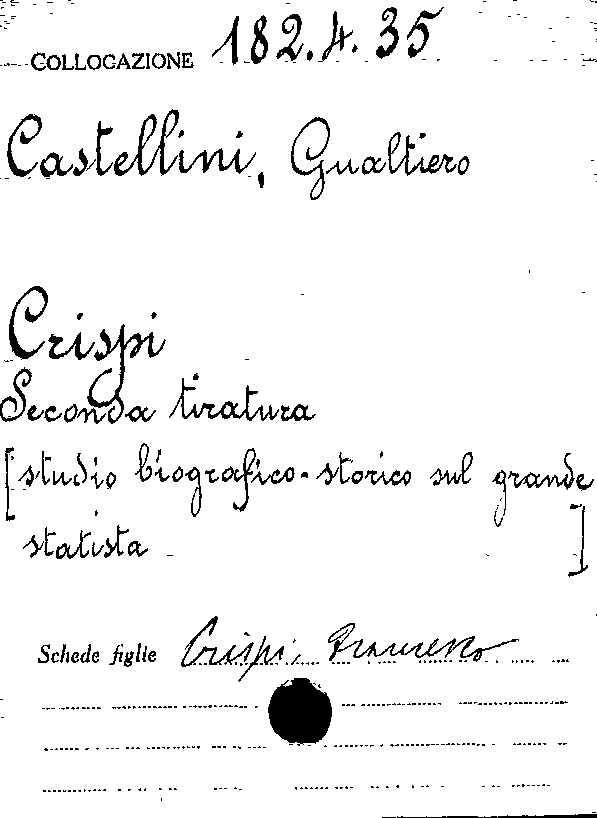 COLLOCAZIONE 182.4.35
Castellini, Gualtiero
Crispi
Seconda tiratura
[studio biografico-storico sul grande
statista]
Schede figlie Crispi, Francesco